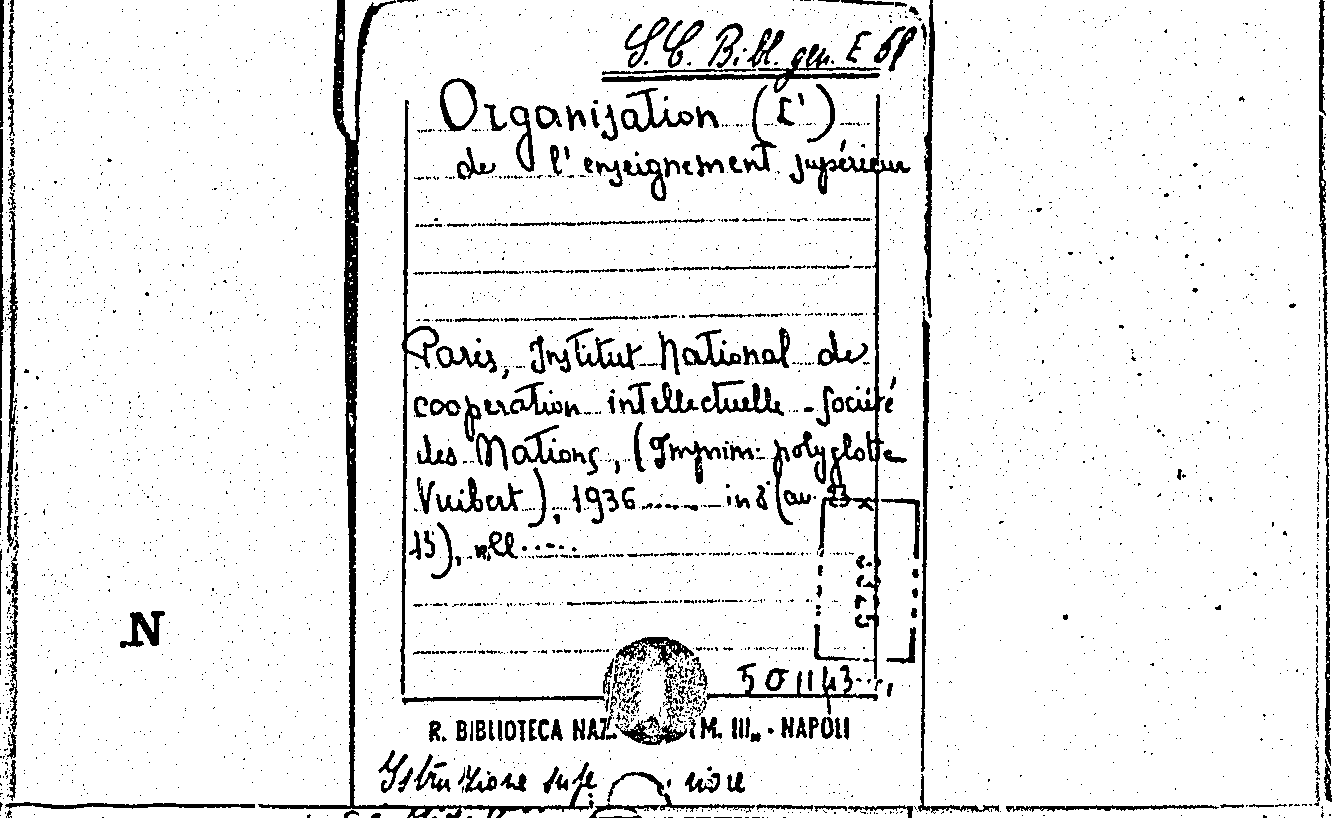 S. C. Bibl. gen. E 68
Organisation (L')
de l'enseignement supérieur
Paris, Institut National de
cooperation intellectuelle - Société
des Nations, (Imprim. polyglotte
Vuibert), 1936...... in 8° (av. 23 x
15), ill.....
3325
501143
R. BIBLIOTECA NAZ. M. III„ - NAPOLI
N
Istruzione supe riore